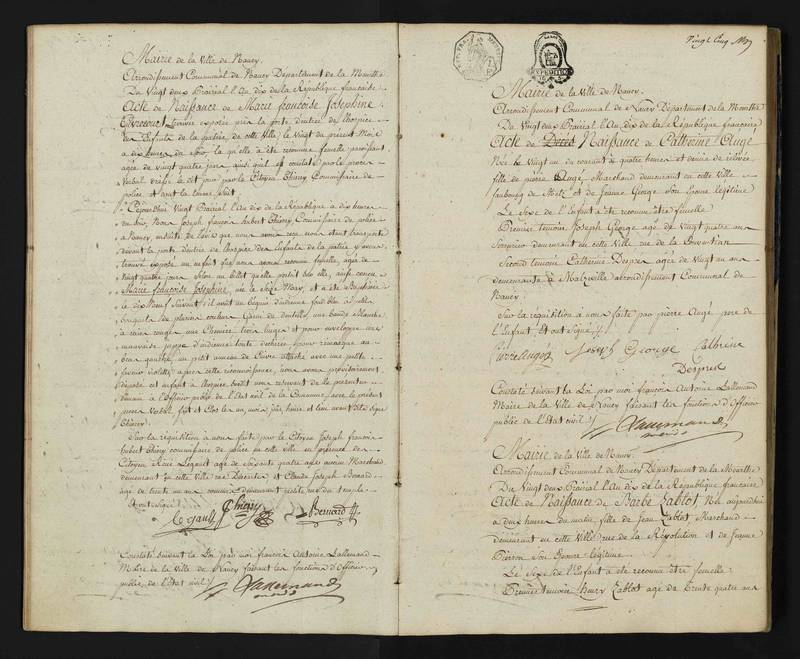 Mairie de la Ville de Nancy.
Arrondissement Communal de Nancy Département de la Meurthe
Du Vingt deux Prairial l'An dix de la République francaise
Acte de Naissance de Marie francoise Josephine
trouvée exposée près la porte d'entrée de l'hospice
des Enfants de la patrie de cette Ville, le Vingt du présent Mois
à dix heures du soir, la qu'elle a été reconnue femelle paroissant
agée de vingt quatre jours ainsi qu'il est constaté par le procès
verbal dressé le dit jour par le Citoyen Thiery Commissaire de
police et dont la teneur suit
Cejourd'hui Vingt Prairial l'An dix de la République à dix heures
du soir, Nous Joseph françois hubert Thiery, Commissaire de police
à Nancy, instruit de l'avis que nous avons reçu nous étant transporté
devant la porte d'entrée de l'hospice des Enfants de la patrie y avons
trouvé exposé un enfant que nous avons reconnu femelle, agée de
vingt quatre jours selon un billet qu'elle portoit sur elle, ainsi conçu
Marie francoise Josephine, née le Seize May, et a été Baptisée
le dix Neuf Suivant; il avoit un béguin d'indienne
garni de dentelle, une bande blanche
à raies rouges une Chemise trois langes et pour enveloppe une
mauvaise juppe d'indienne toute déchirée, pour remarque au
bras gauche un petit anneau de Cuivre attaché avec une petite
violette après cette reconnoissance, nous avons provisoirement
déposé cet enfant à l'hospice
à l'Officier public de l'Etat civil de la Commune avec le présent
procès Verbal, fait et Clos les an, mois, jour, heure et lieu avant dits Signé
Thiery.
Sur la réquisition à nous faite par le Citoyen Joseph françois
hubert Thiery commissaire de police en cette ville en présence des
Citoyens René Légault agé de soixante quatre ans ancien Marchand
demeurant en cette Ville rue et Claude Joseph Bernard
agé de trente un ans commis demeurant rue du temple
et ont signé
Légault Thiery Bernard
Constaté suivant la Loi par moi françois Antoine Lallemand
Maire de la Ville de Nancy faisant les fonctions d'Officier
public de l'Etat civil
Lallemand
Vingt Cinq
EXPEDITION
Mairie de la Ville de Nancy.
Arrondissement Communal de Nancy Département de la Meurthe
Du Vingt deux Prairial l'An dix de la République francaise
Acte de Décès Naissance de Catherine Augé
Née le Vingt un du courant à quatre heures et demie de relevée,
fille de pierre Augé, Marchand demeurant en cette Ville
faubourg de Metz et de Jeanne George son Epouse légitime
Le Sexe de l'Enfant a été reconnu être femelle
Premier temoin Joseph George agé de Vingt quatre ans
demeurant en cette Ville rue de la Convention
Second temoin Catherine Desprez agée de Vingt un ans
demeurante à Malzéville arrondissement Communal de
Nancy.
Sur la réquisition à nous faite par pierre Augé pere de
l'Enfant, Et ont signé
Pierre Augé Joseph George Catherine
Desprez
Constaté suivant la Loi par moi françois Antoine Lallemand
Maire de la Ville de Nancy faisant les fonctions d'Officier
public de l'Etat civil
Lallemand
Mairie de la Ville de Nancy.
Arrondissement Communal de Nancy Département de la Meurthe
Du Vingt deux Prairial l'An dix de la République francaise
Acte de Naissance de Barbe Zablot, Née aujourd'hui
à deux heures du matin, fille de Jean Zablot Marchand
demeurant en cette Ville rue de la Révolution et de Jeanne
Pierron Son Epouse légitime.
Le Sexe de l'Enfant a été reconnu être femelle
Premier temoin henry Zablot agé de trente quatre ans